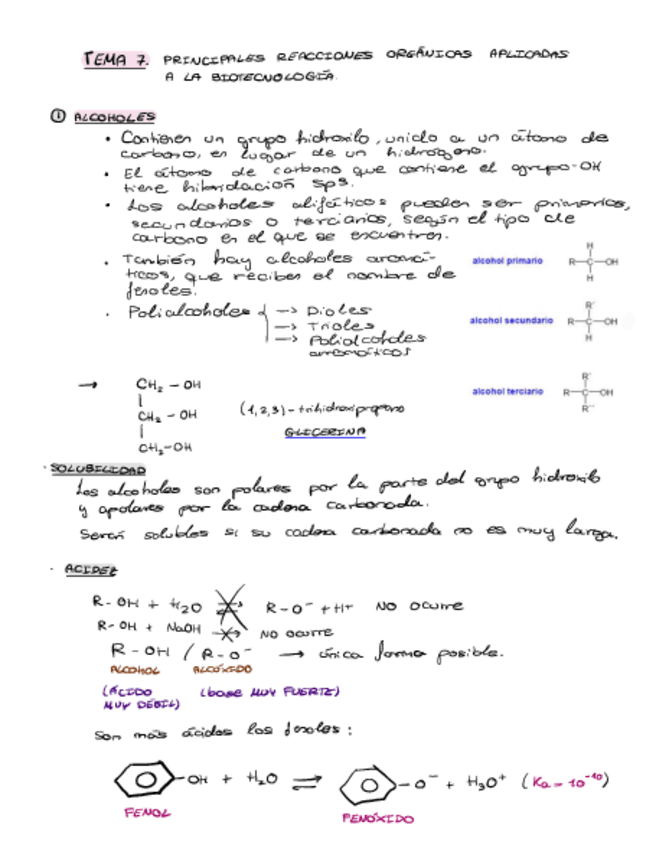 TEMA 7. PRINCIPALES REACCIONES ORGÁNICAS APLICADAS
A LA BIOTECNOLOGÍA.
① ALCOHOLES
• Contienen un grupo hidroxilo, unido a un átomo de
carbono, en lugar de un hidrógeno.
• El átomo de carbono que contiene el grupo -OH
tiene hibridación sp3.
• Los alcoholes alifáticos pueden ser primarios,
secundarios o terciarios, según el tipo de
carbono en el que se encuentren.
• También hay alcoholes aromá-
ticos, que reciben el nombre de
fenoles.
alcohol primario
H
R-C-OH
H
• Polialcoholes
→ Dioles
→ Trioles
→ Polialcoholes
aromáticos
alcohol secundario
R'
R-C-OH
H
alcohol terciario
R'
R-C-OH
R''
→ CH2 - OH
|
CH2 - OH
|
CH2-OH
(1,2,3)-trihidroxipropano
GLICERINA
· SOLUBILIDAD
Los alcoholes son polares por la parte del grupo hidroxilo
y apolares por la cadena carbonada.
Serán solubles si su cadena carbonada no es muy larga.
· ACIDEZ
R-OH + H2O ⇌ R-O⁻ + H+ NO OCURRE
R-OH + NaOH → NO OCURRE
R-OH / R-O⁻ → única forma posible.
ALCOHOL ALCÓXIDO
(ÁCIDO MUY DÉBIL) (base MUY FUERTE)
Son más ácidos los fenoles:
-OH + H2O ⇌ -O⁻ + H3O⁺ (Ka = 10⁻¹⁰)
FENOL
FENÓXIDO